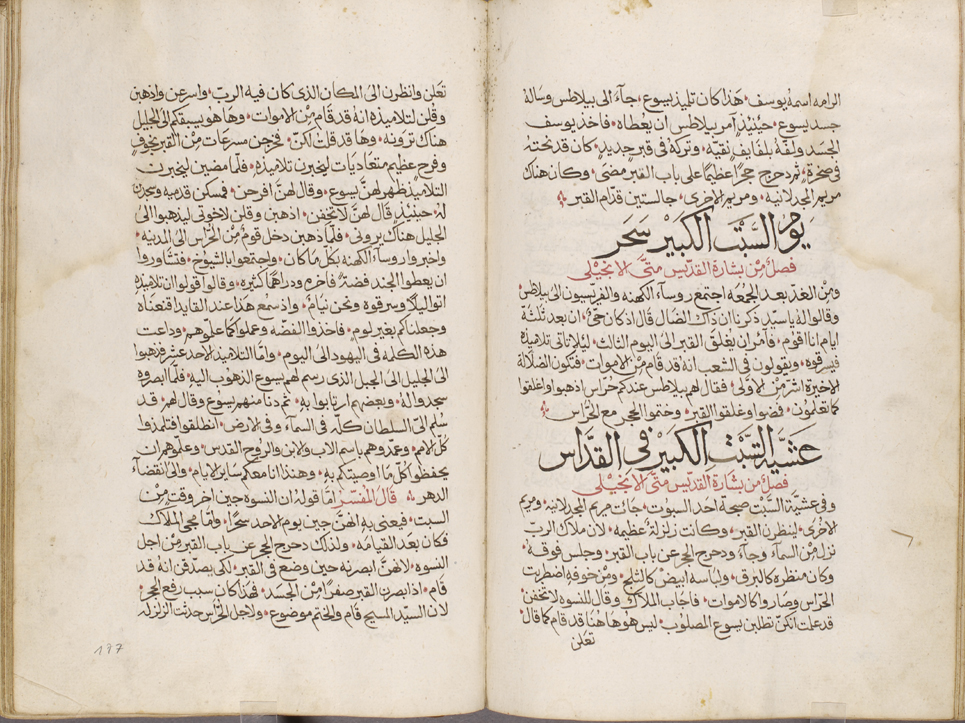 الرامه اسمهُ يوسف، هَذا كان تلميذ يسوع، جآءَ الى بيلاطس وسالهُ
جسد يسوع، حينيذٍ آمر بيلاطس ان يعُطاهُ، فاخذ يوسف
الجسَد ولفّهُ بلفايف نقيّه، وتركهُ في قبر جديدٍ، كان قد نحتهُ
في صخرةٍ، ثم دحرج حجراً عظيماً على باب القبر، مضى، وكان هناك
مريم المجدلانية، ومريم الاخرى، جالستين قدّام القبر
يوم السَّبْتِ الكبيرْ سَحَر
فصلٌ مِن بشارة القديس متّى الانجيلى
ومن الغدّ بعد الجُمعَه اجتمع روسآء الكهنه والفريسيون الى بيلاطس
وقالوا لهُ يا سيّد ذكرنا ان ذاك الضال قال اذ كان حىٌّ، ان بعد ثلثة
ايام انا اقوم، فآمُر ان يُغلق القبر الى اليوم الثالث، ليلا تاتى تلاميذهُ
فيسرقوه، ويقولون في الشعب انهُ قد قام مِن الاموات، فتكون الضلالة
الاخيرة اشر مِن الاولى، فقال لهم بيلاطس عندكم حُراس اذهبوا واغلقوا
كما تعلمُون، فمضوا وغلقوا القبر، وختموا الحجر مع الحُرّاس
عَشيّة السَّبْتِ الكبيرْ في القدَّاس
فصلٌ من بشارة القديس متّى الانجيلى
وفي عشيّة السّبت صبحّة احد السبوت، جات مريم المجدلانيه، ومريم
الاخُرى، لينظرن القبر، وكانت زلزلةٌ عظيمه، لان ملاك الرب
نزل مِن السمآءِ وجآءَ ودحرج الحجر عن باب القبر، وجلس فوقهُ،
وكان منظرهُ كالبرق، ولباسه ابيض كالثلج، ومن خوفهِ اضطربت
الحرّاس وصاروا كالاموات، فاجاب الملاك، وقال للنسوه لا تخفن،
قد علمت انكنّ تطلبن يسوع المصلوب، ليس هو هاهُنا قد قام كما قال
تعَلن
تعَلن وانظرن الى المكان الذي كان فيه الربّ، واسرعن واذهبن
وقلن لتلاميذهِ انهُ قد قام مِن الاموات، وها هو يسبقكم الى الجليل
هناك ترونهُ، وها قد قلت لكنّ، فخرجن مسرعات مِن القبر بخوفٍ
وفرح عظيم متعَاديات ليخبرن تلاميذهُ، فلمّا مضين ليخبرن
التلاميذ ظهر لهنّ يسوع، وقال لهنّ افرحن، فمسكن قدميه وسجدن
لهُ، حينيذٍ قال لهنّ لا تخفن، اذهبن وقلن لاخوتي ليذهبوا الى
الجليل هناك يروني، فلمّا ذهبن دخل قومٌ مِن الحُرّاس الى المدينه،
واخبروا روساء الكهنه بكلّ ما كان، واجتمعوا بالشيُوخ، فتشاوروا
ان يعطوا الجند فضهً، فاخرهم ودراهماً كثيره، وقالوا قولوا ان تلاميذهُ
اتوا ليلاً وسرقوهُ ونحن نيامٌ، واذ سمُع هَذا عند القايد اقنعناهُ
وجعلناكم بغير لومٍ، فاخذوا الفضّه وعملوا كما علّموهم، وداعت
هذه الكلمه في اليهود الى اليوم، وامّا التلاميذ الاحد عشر فذهبوا
الى الجليل الى الجبل الذى رسم لهم يسوع الذهُوب اليه، فلمّا ابصروهُ
سجدوا لهُ، وبعضهم ارتابوا بهِ، ثم دنا منهم يسوع وقال لهم، قد
سُلم الىّ السلطان كلّهُ في السمآءِ وفي الارض، انطلقوا فتلمذوا
كلّ الامم، وعمّدوهم باسم الاب والابن والروح القدس، وعلّموهم ان
يحفظوا كلّ ما اوصيتكم بهِ، وهنذا انا معكم ساير الايام، والى انقضآءِ
الدهر، قالَ المفسّر امّا قولهُ ان النسوه حين اخر وقتٍ مِن
السبت، فيعنى بهِ انهنّ جين يوم الاحد سحَراً، وامّا مجي الملاك
فكان بعد القيامَه، ولذلك دحرج الحجر عن باب القبر مِن اجل
النسوه، لانهنّ ابصرنه حين وضع في القبر، لكى يصدّقن انه قد
قام، اذا بصرن القبر صفراً مِن الجسَد، فهذا كان سبب رفع الحجر،
لان السيّد المسيح قام والختم موضوع، ولاجل الحُرّاس حدثت الزلزله
197